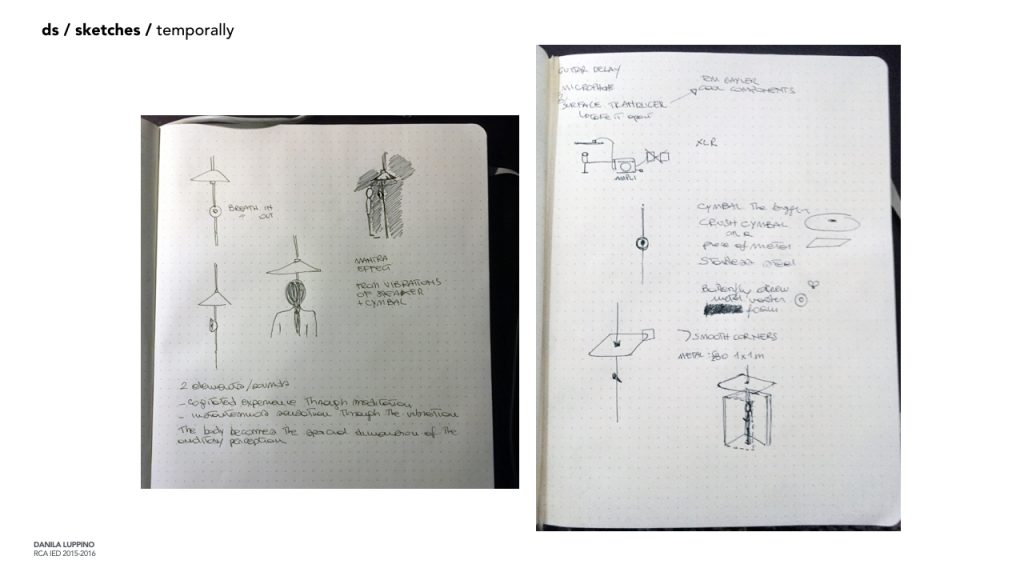 ds / sketches / temporally
BREATH IN
+ OUT
MANTRA
EFFECT
FROM VIBRATIONS
OF SPEAKER
+ CYMBAL
2 elements/sounds
- cogitated experience Through meditation
- instantaneous sensation Through The vibration
The body becomes The special dimension of The
auditory perception
GUITAR DELAY
MICROPHONE
SURFACE TRANDUCER
COOL COMPONENTS
XLR
AMPLI
CYMBAL The bigger
CRUSH CYMBAL
OR a
piece of metal
STAINLESS steel
Butterfly screw
metal washer
foam
SMOOTH CORNERS
METAL: 1x1m
DANILA LUPPINO
RCA IED 2015-2016